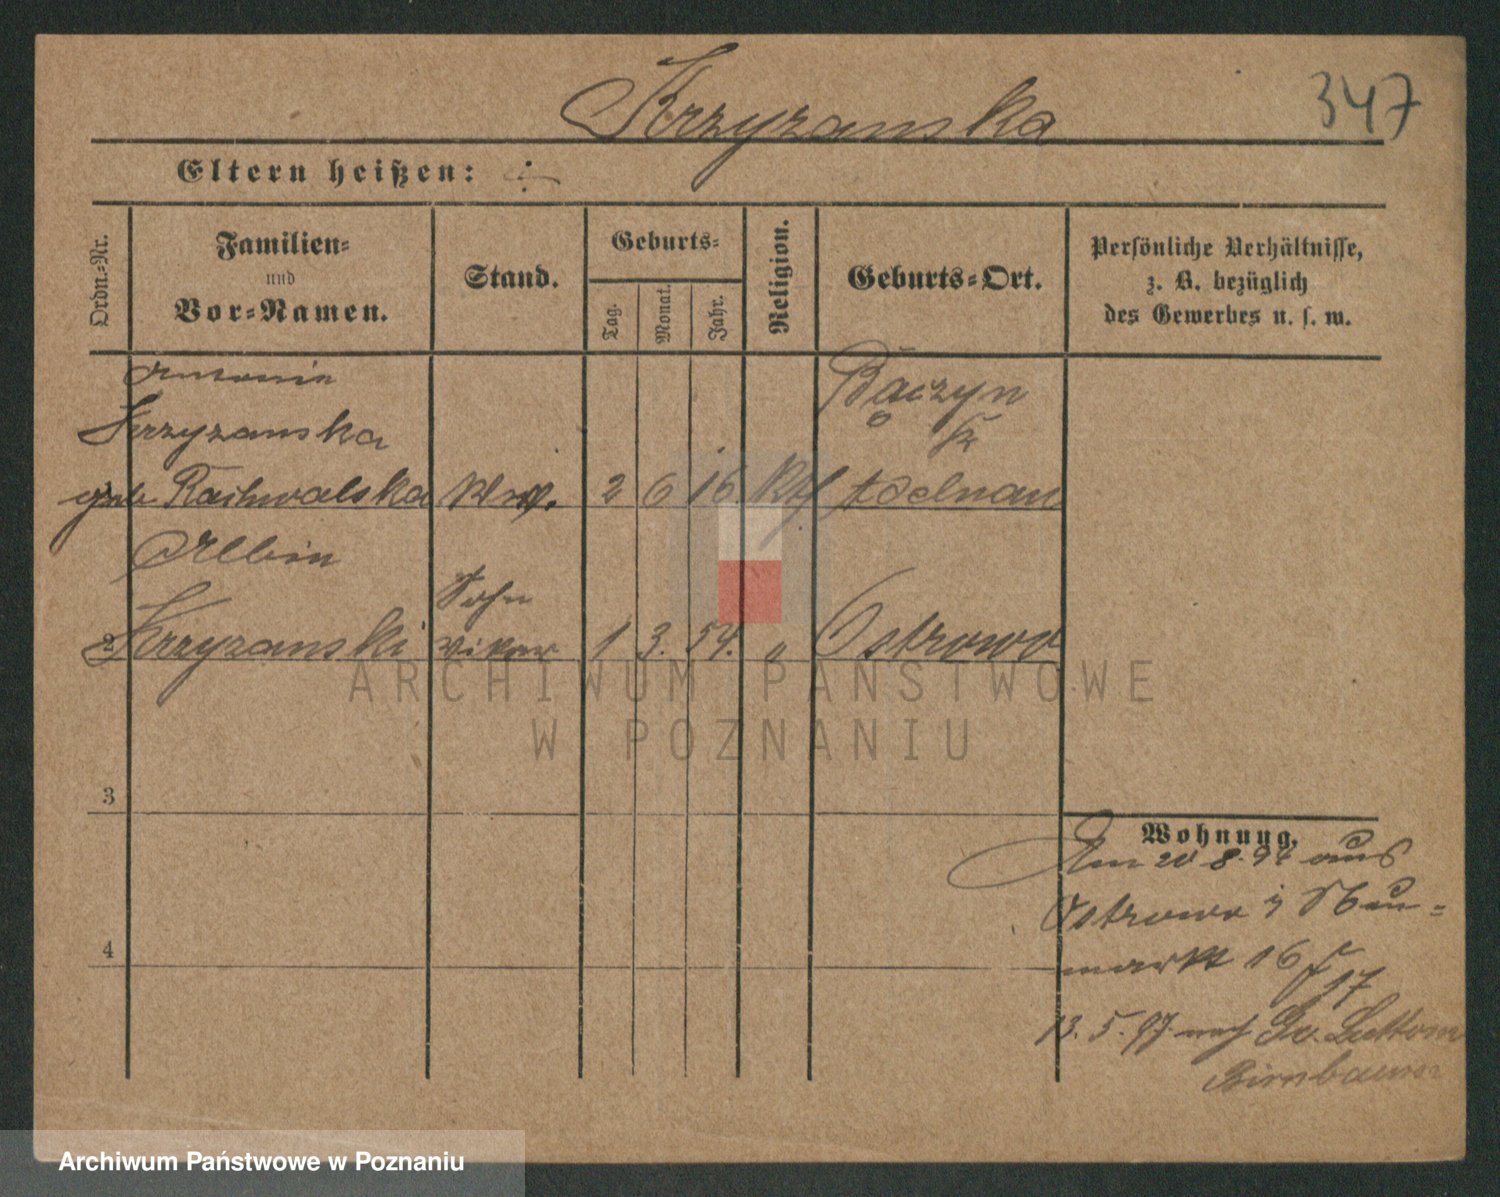 Krzyzanska
347
Eltern heißen:
Ordn.-Nr.
Familien-
und
Vor-Namen.
Stand.
Geburts-
Tag.
Monat.
Jahr.
Religion.
Geburts-Ort.
Persönliche Verhältnisse,
z. B. bezüglich
des Gewerbes u. s. w.
Antonie
Krzyzanska
geb Rachwalska Wwe. 2 6 16 Kth
Bączyn
Kr
Adelnau
Albin
2 Krzyzanski
Sohn
Vikar 1 3. 54. „ Ostrowo
3
4
Wohnung.
Am 20 8. 94 aus
Ostrowo Neu-
markt 16
17
13. 5. 97. nach Gr. Luttom
Birnbaum
ARCHIWUM PAŃSTWOWE
W POZNANIU
Archiwum Państwowe w Poznaniu